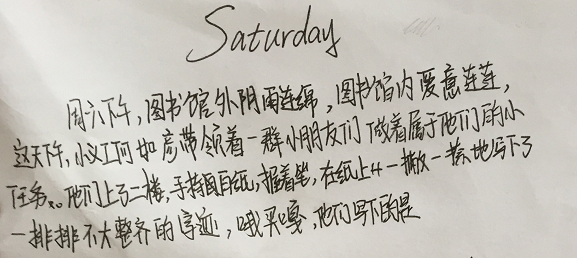 Saturday
周六下午,图书馆外阴雨连绵,图书馆内爱意连连,
这天下午,小义工何如彦带领着一群小朋友们做着属于他们的小
任务。他们上了二楼,手持白纸,握着笔,在纸上一撇一捺地写下了
一排排不大整齐的字迹,哦买嘎,他们写下的是